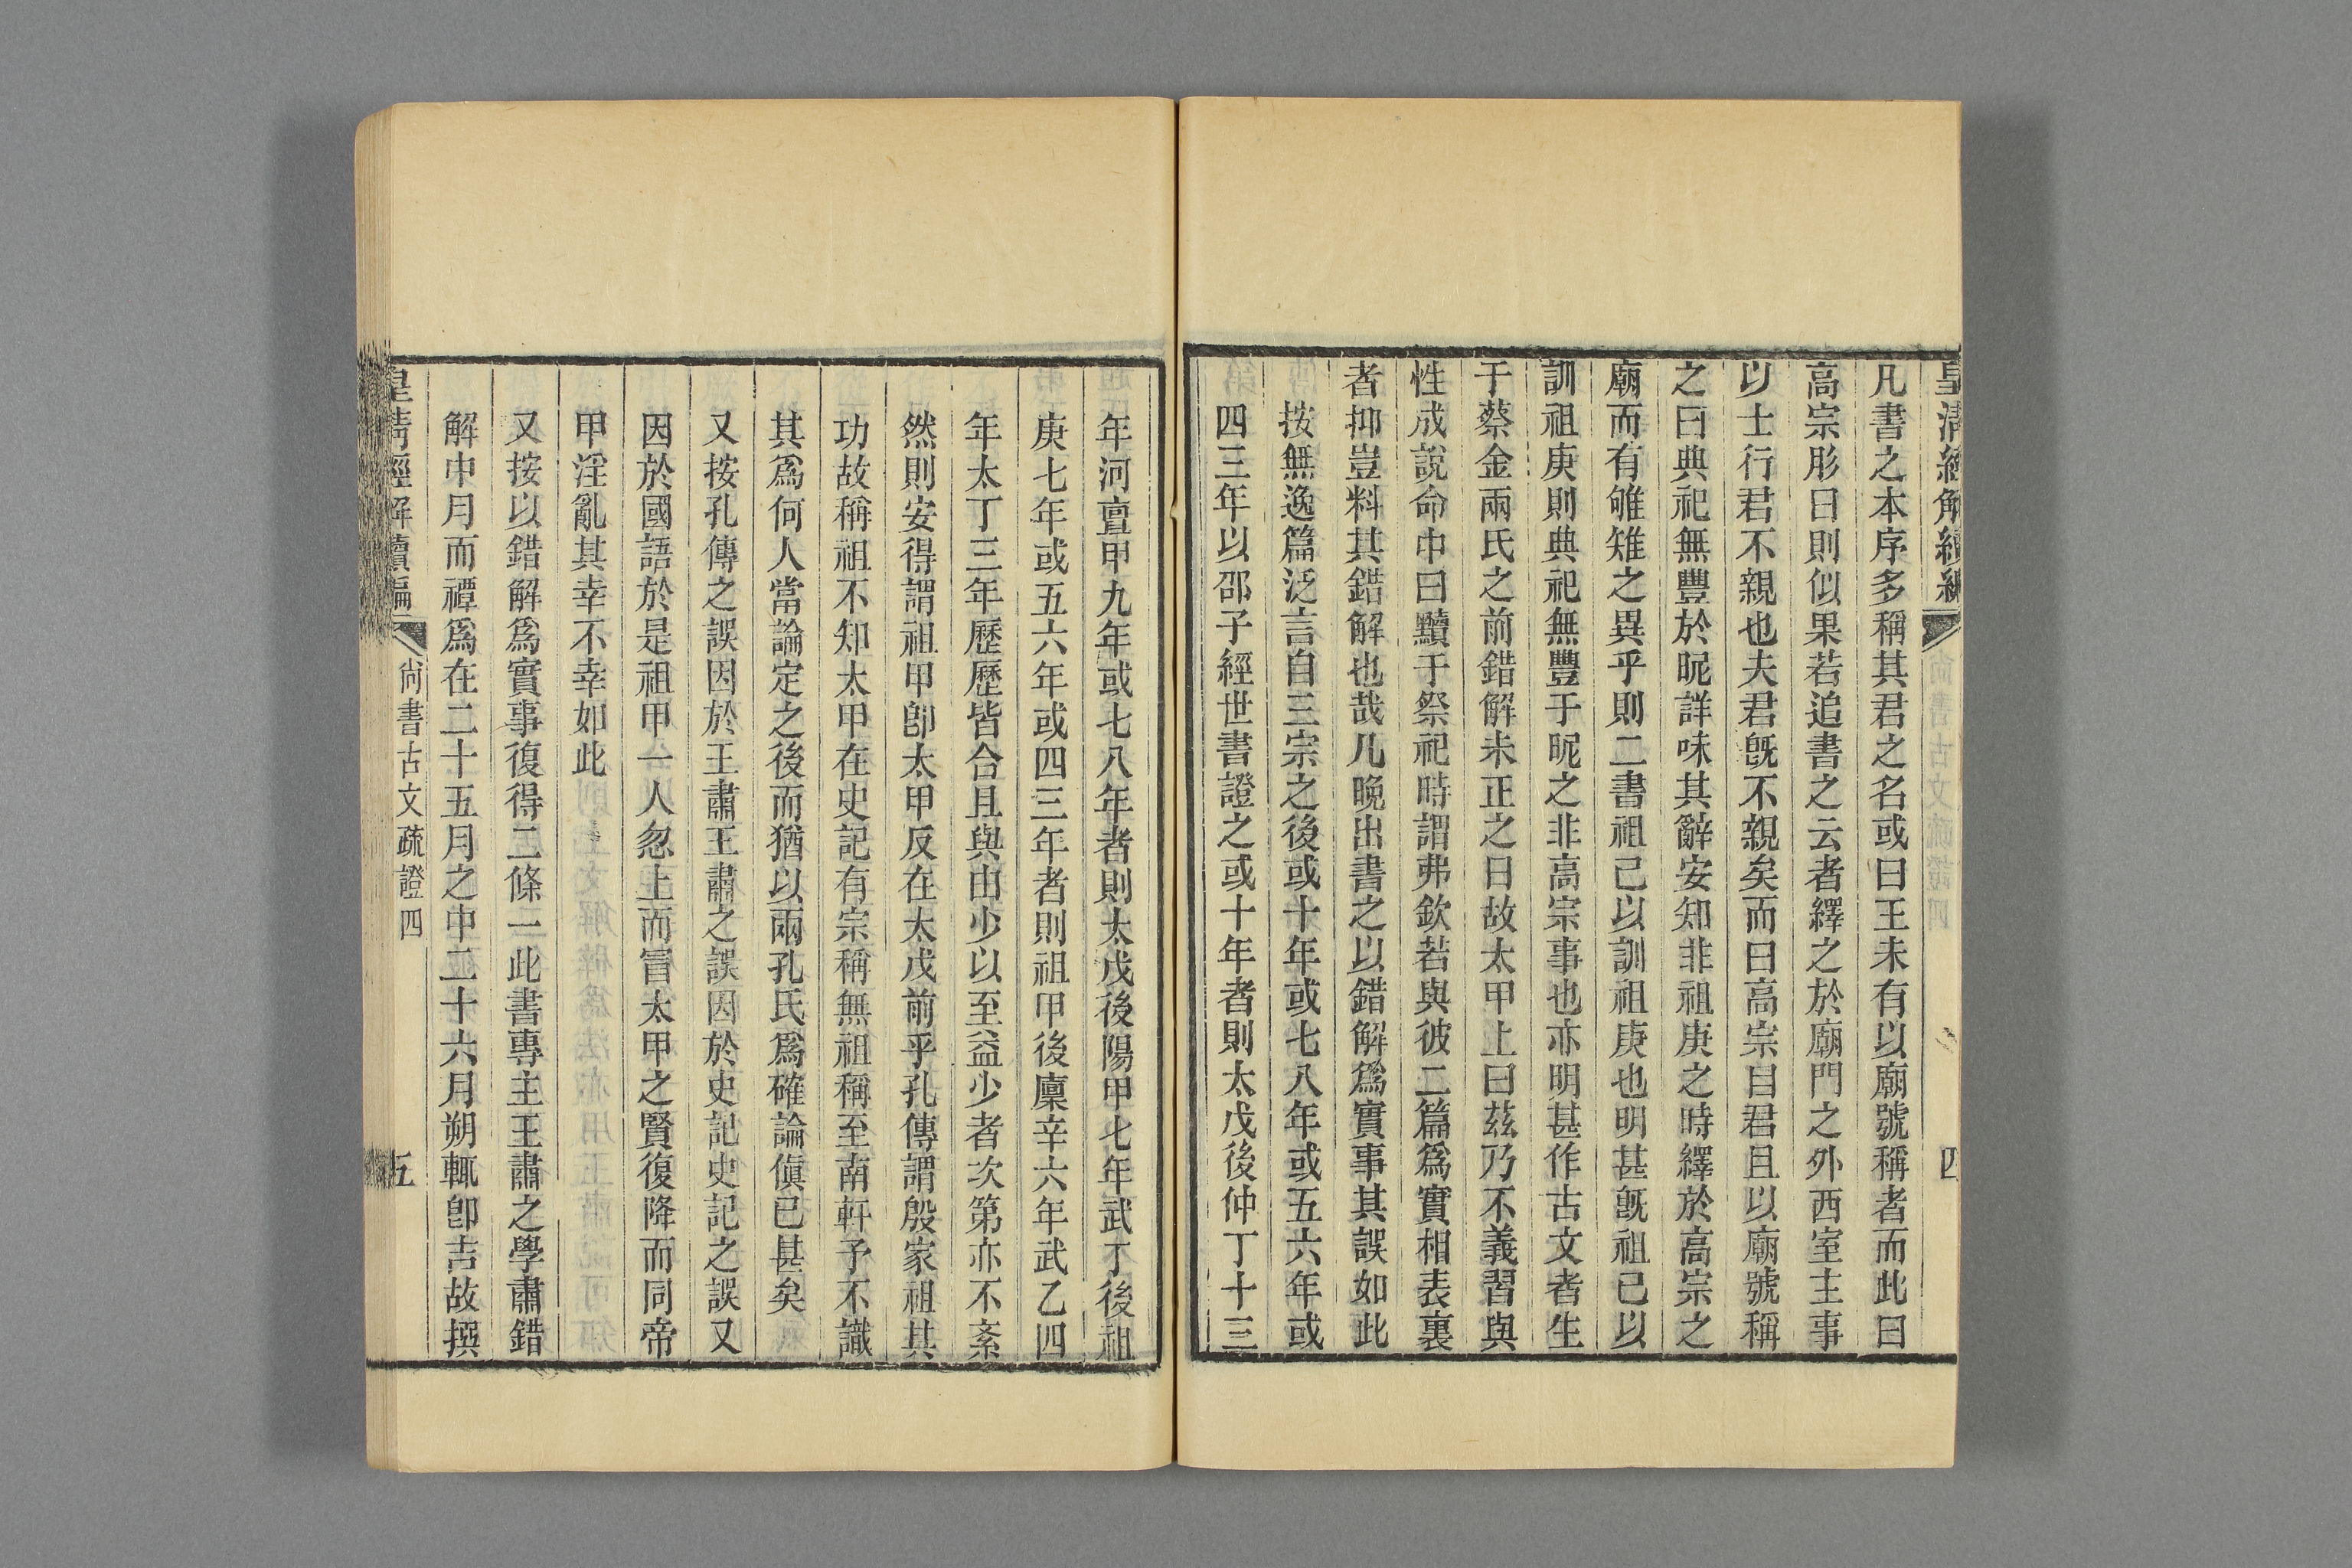 皇清經解續編
四
凡書之本序多稱其君之名或曰王未有以廟號稱者而此曰
高宗肜日則似果若追書之云者繹之於廟門之外西室主事
以士行君不親也夫君旣不親矣而曰高宗目君且以廟號稱
之曰典祀無豐於昵詳味其辭安知非祖庚之時繹於高宗之
廟而有雊雉之異乎則二書祖己以訓祖庚也明甚旣祖己以
訓祖庚則典祀無豐于昵之非高宗事也亦明甚作古文者生
于蔡金兩氏之前錯解未正之日故太甲上曰茲乃不義習與
性成說命中曰黷于祭祀時謂弗欽若與彼二篇爲實相表裏
者抑豈料其錯解也哉凡晚出書之以錯解爲實事其誤如此
按無逸篇泛言自三宗之後或十年或七八年或五六年或
四三年以邵子經世書證之或十年者則太戊後仲丁十三
年河亶甲九年或七八年者則太戊後陽甲七年武丁後祖
庚七年或五六年或四三年者則祖甲後廩辛六年武乙四
年太丁三年歷歷皆合且與由少以至益少者次第亦不紊
然則安得謂祖甲卽太甲反在太戊前乎孔傳謂殷家祖其
功故稱祖不知太甲在史記有宗稱無祖稱至南軒予不識
其爲何人當論定之後而猶以兩孔氏爲確論傎已甚矣
又按孔傳之誤因於王肅王肅之誤因於史記史記之誤又
因於國語於是祖甲一人忽上而冒太甲之賢復降而同帝
甲淫亂其幸不幸如此
又按以錯解爲實事復得二條一此書專主王肅之學肅錯
解中月而禫爲在二十五月之中二十六月朔輒卽吉故撰
皇清經解續編
尙書古文疏證四
五